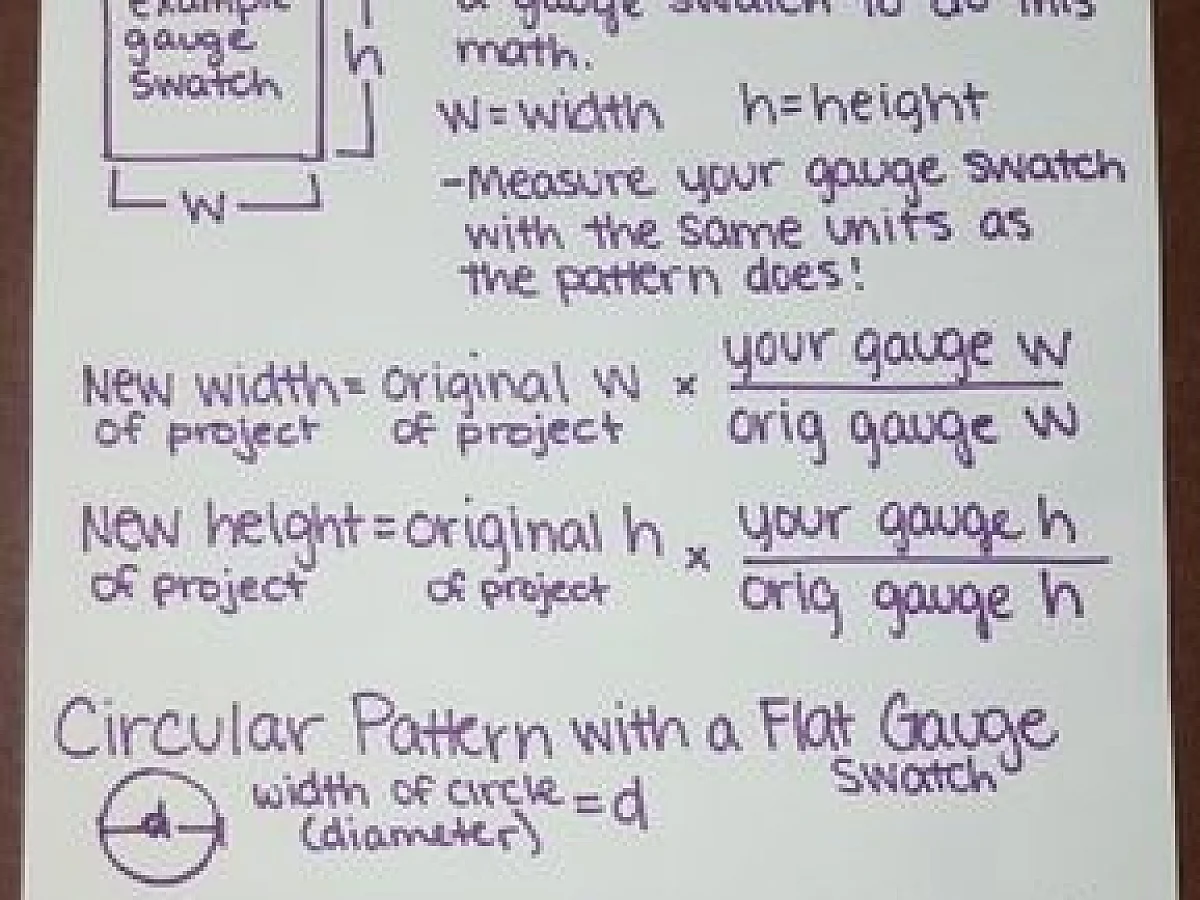 example
gauge
swatch
h
w
a gauge swatch to do this
math.
w=width h=height
-Measure your gauge swatch
with the same units as
the pattern does!
New width= original w x your gauge w
of project of project orig gauge w
New height=original h x your gauge h
of project of project orig gauge h
Circular Pattern with a Flat Gauge
Swatch
d
width of circle =d
(diameter)